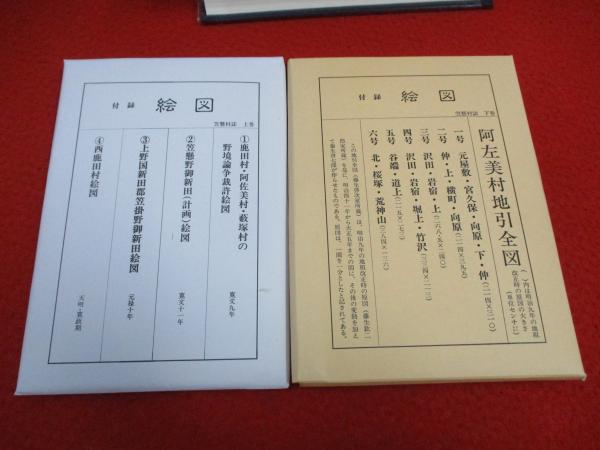 付録 絵図
笠懸村誌 上巻
①鹿田村・阿佐美村・薮塚村の
野境論争裁許絵図
寛文九年
②笠懸野御新田(計画)絵図
寛文十一年
③上野国新田郡笠掛野御新田絵図
元禄十年
④西鹿田村絵図
天明~寛政期
付録 絵図
笠懸村誌 下巻
阿左美村地引全図
()内は明治九年の地租
改正時の原図の大きさ
(単位センチ)
一号 元屋敷・宮久保・向原・下・仲
二号 仲・上・横町・向原
三号 沢田・岩宿・上
四号 沢田・岩宿・堀上・竹沢
五号 谷端・道上
六号 北・桜塚・荒神山